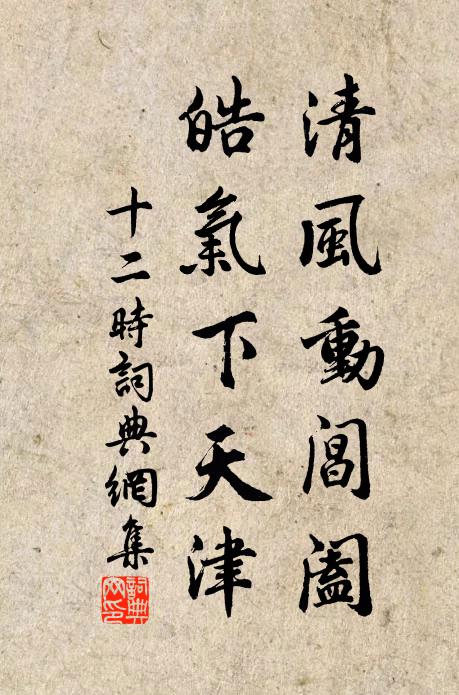 清風動閶闔
皓氣下天津
十二時詞典網集
詞典網印